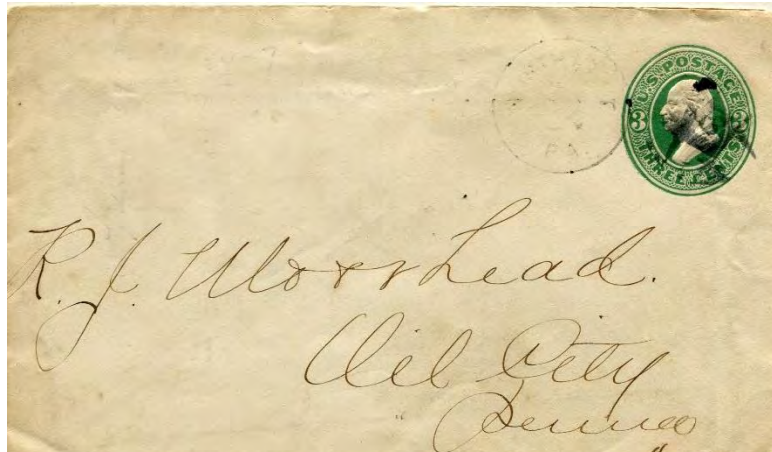 U.S. POSTAGE
3 3
THREE CENTS
PA.
R. J. Morrhead.
Oil City
Penna